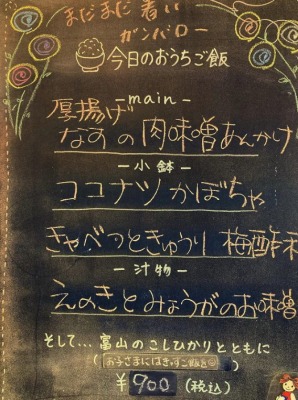 まだまだ暑い
ガンバロー
今日のおうちご飯
-main-
厚揚げ
なすの肉味噌あんかけ
-小鉢-
ココナツかぼちゃ
きゃべつときゅうり 梅酢和
-汁物-
えのきとみょうがのお味噌
そして…富山のこしひかりとともに
(お子さまにはきすご飯を)
¥900 (税込)